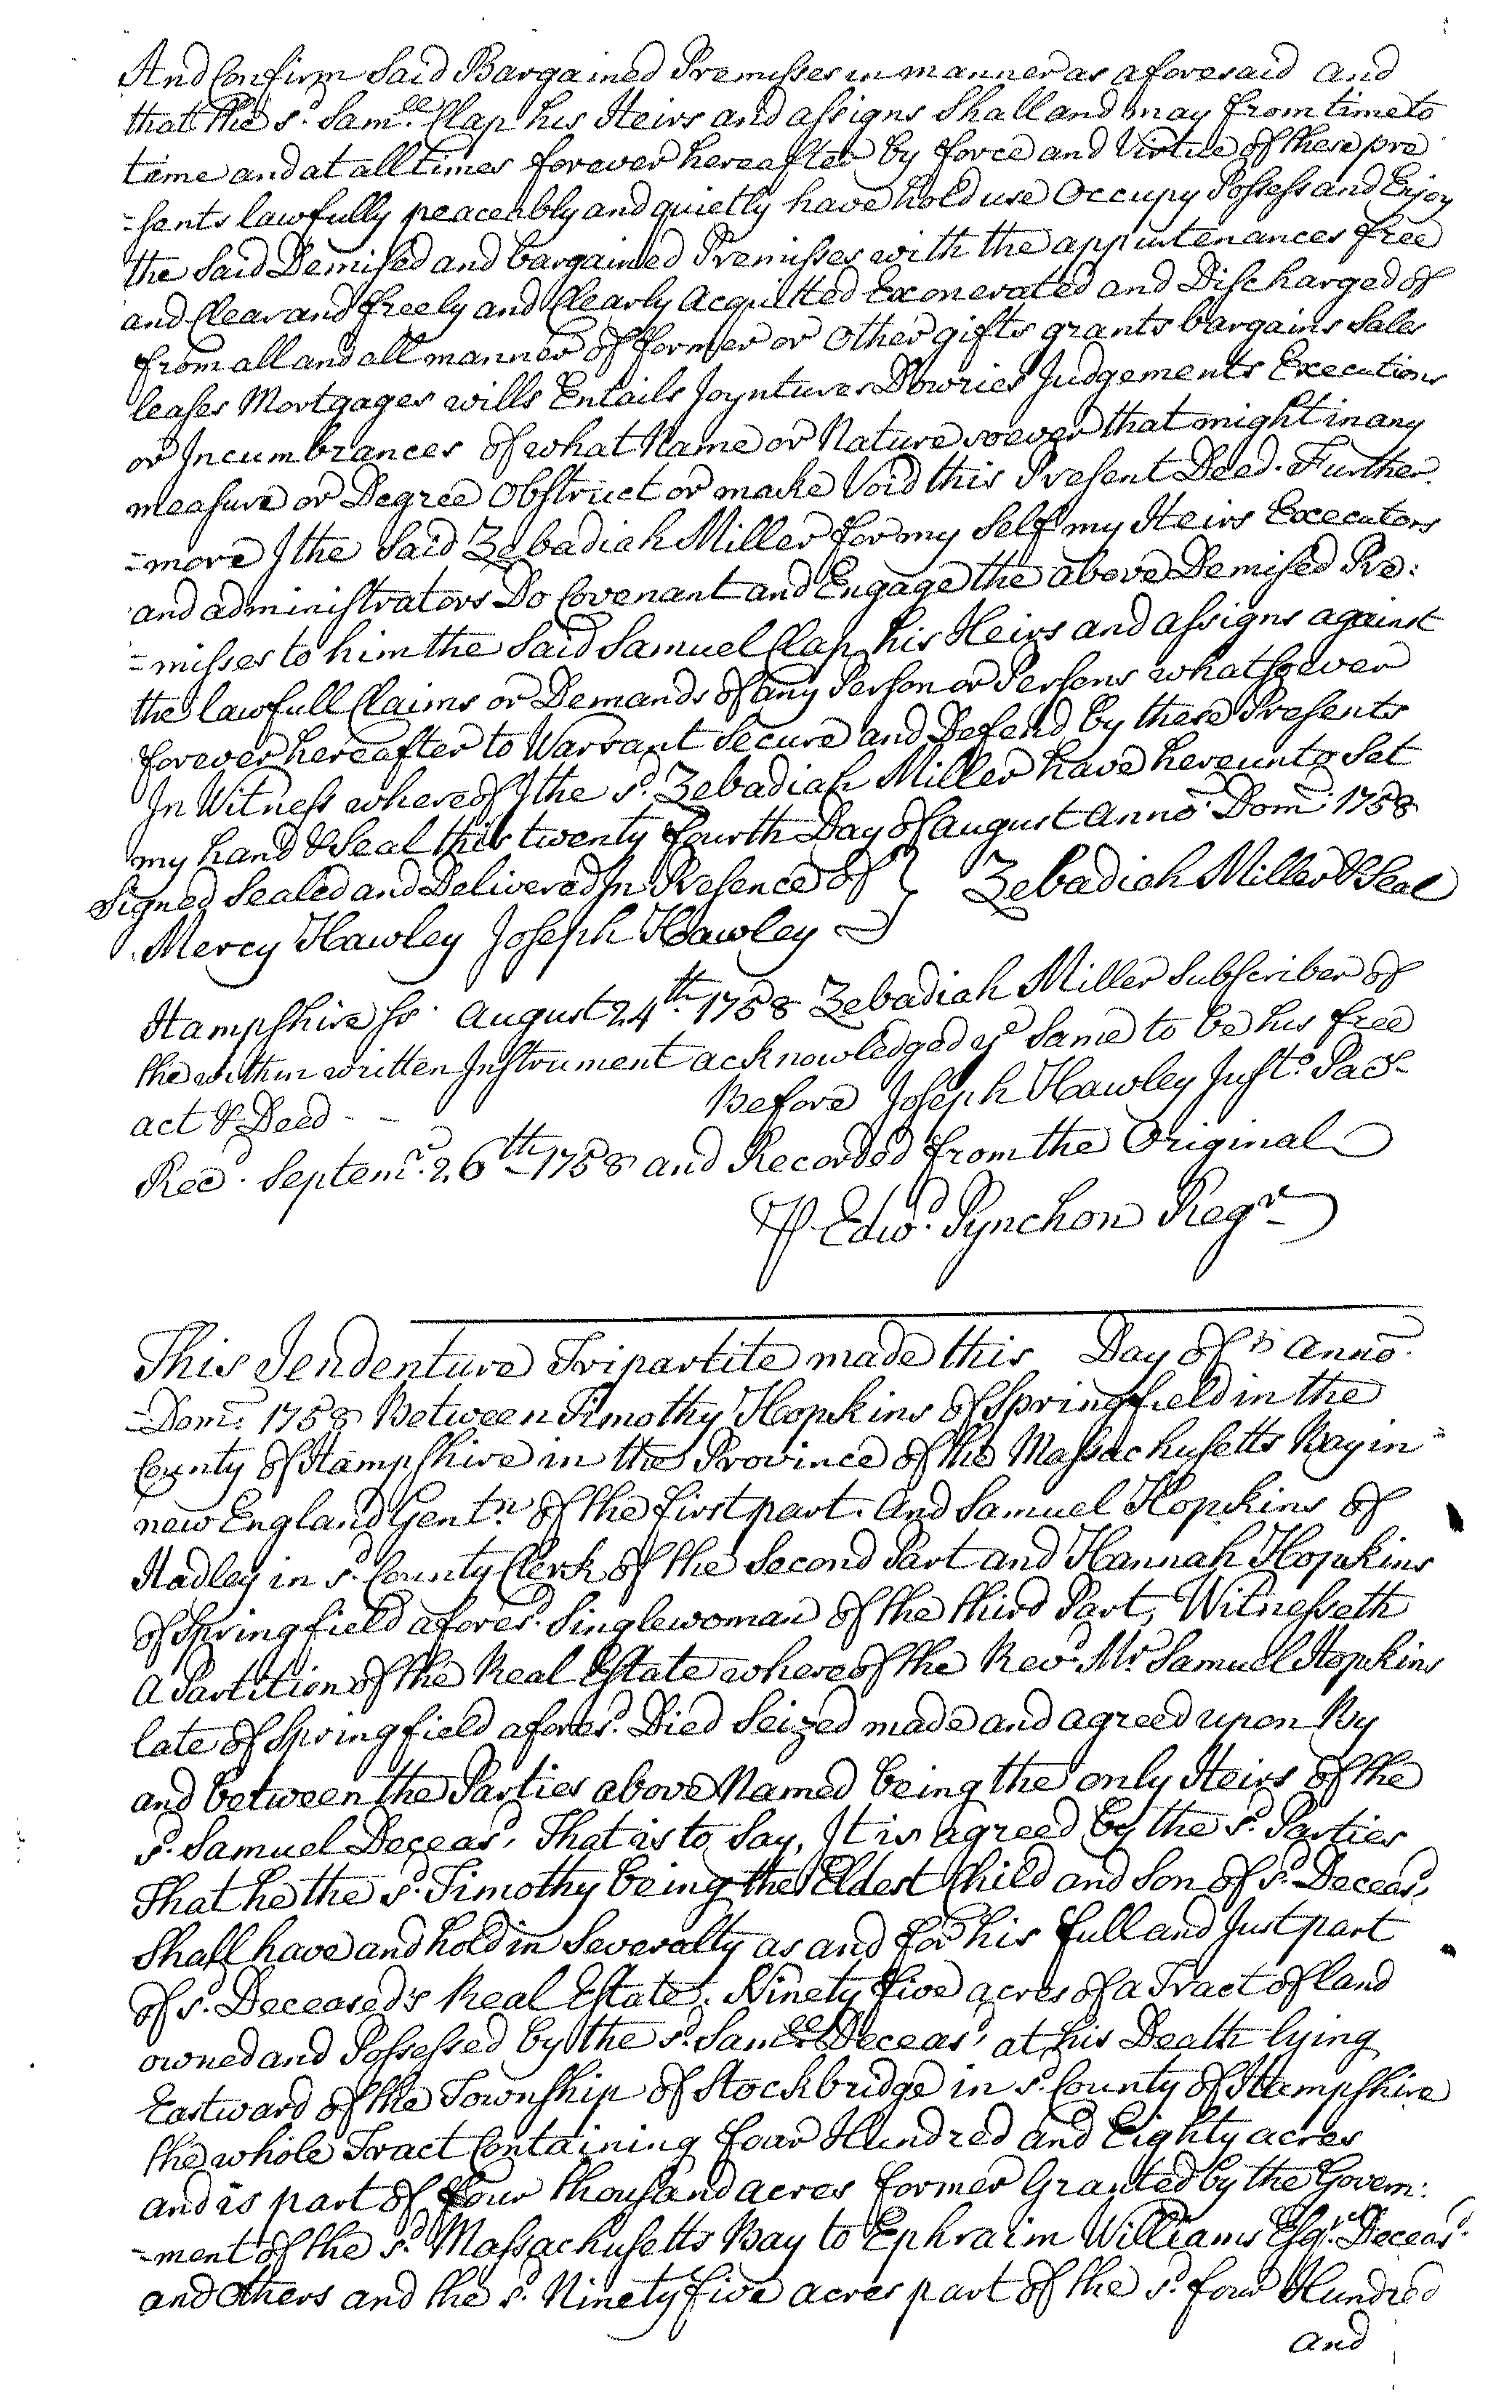 And Confirm Said Bargained Premisses in manner as aforesaid and
that the sd. Samll. Clap his Heirs and assigns Shall and may from time to
time and at all times forever hereafter by force and Virtue of these pre
=sents lawfully peaceably and quietly have hold use Occupy Possess and Enjoy
the Said Demised and bargained Premisses with the appurtenances free
and Clear and freely and Clearly Acquitted Exonerated and Discharged of
from all and all manner of former or Other gifts grants bargains Sales
leases Mortgages wills Entails Joyntures Dowries Judgements Executions
or Incumbrances of what Name or Nature soever that might in any
measure or Degree Obstruct or make Void this Present Deed. Further
=more I the Said Zebadiah Miller for my Self my Heirs Executors
and administrators Do Covenant and Engage the above Demised Pre:
=misses to him the Said Samuel Clap his Heirs and assigns against
the lawfull Claims or Demands of any Person or Persons whatsoever
forever hereafter to Warrant Secure and Defend by these Presents
In Witness whereof I the sd. Zebadiah Miller have hereunto Set
my hand & Seal this twenty fourth Day of august Anno Dom: 1758
Signed Sealed and Delivered In Presence of } Zebadiah Miller & Seal
Mercy Hawley Joseph Hawley
Hampshire ss. August 24th. 1758 Zebadiah Miller Subscriber of
the within written Instrument acknowledged ye Same to be his free
act & Deed - - Before Joseph Hawley Juste. Pacs-
Recd. Septemr. 26th 1758 and Recorded from the Original
P Edwd. Pynchon Regr
This Jendenture Tripartite made this Day of Anno
=Dom: 1758 Between Timothy Hopkins of Springfield in the
County of Hampshire in the Province of the Massachusetts Bay in
new England Gentn. of the first part. And Samuel Hopkins of
Hadley in sd. County Clerk of the Second Part and Hannah Hopkins
of Springfield aforesd. Singlewoman of the third Part, Witnesseth
A Partition of the Real Estate whereof the Revd. Mr. Samuel Hopkins
late of Springfield aforesd. Died Seized made and agreed upon By
and between the Parties above Named being the only Heirs of the
sd. Samuel Deceasd, That is to Say, It is agreed by the sd. Parties
That he the sd. Timothy being the Eldest Child and Son of sd. Deceasd,
Shall have and hold in Severalty as and for his full and Just part
of sd. Deceased's Real Estate. Ninety five acres of a Tract of land
owned and Possessed by the sd. Samll. Deceasd, at his Death lying
Eastward of the Township of Stockbridge in sd. County of Hampshire
the whole Tract Containing four Hundred and Eighty acres
and is part of four thousand acres former Granted by the Govern:
=ment of the sd. Massachusetts Bay to Ephraim Williams Esqr. Deceasd.
and Others and the sd. Ninety five acres part of the sd. four Hundred
and